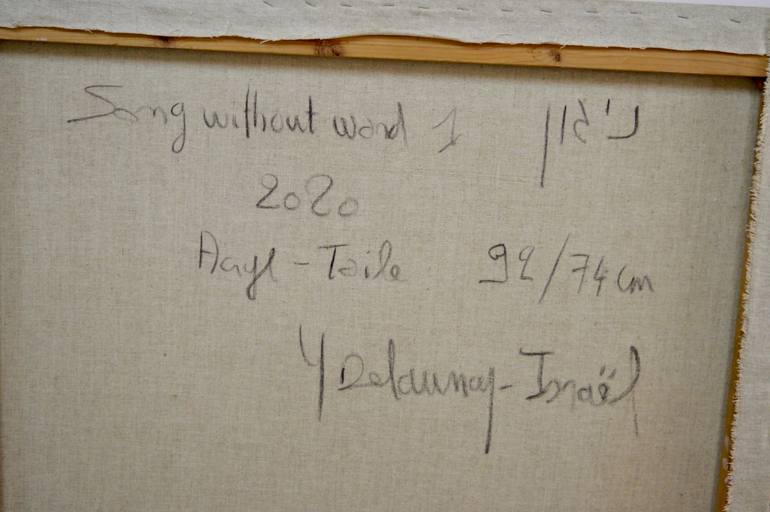 Song without word 1 ניגון
2020
Acryl - Toile 92/74 cm
Y Delaunay-Israël